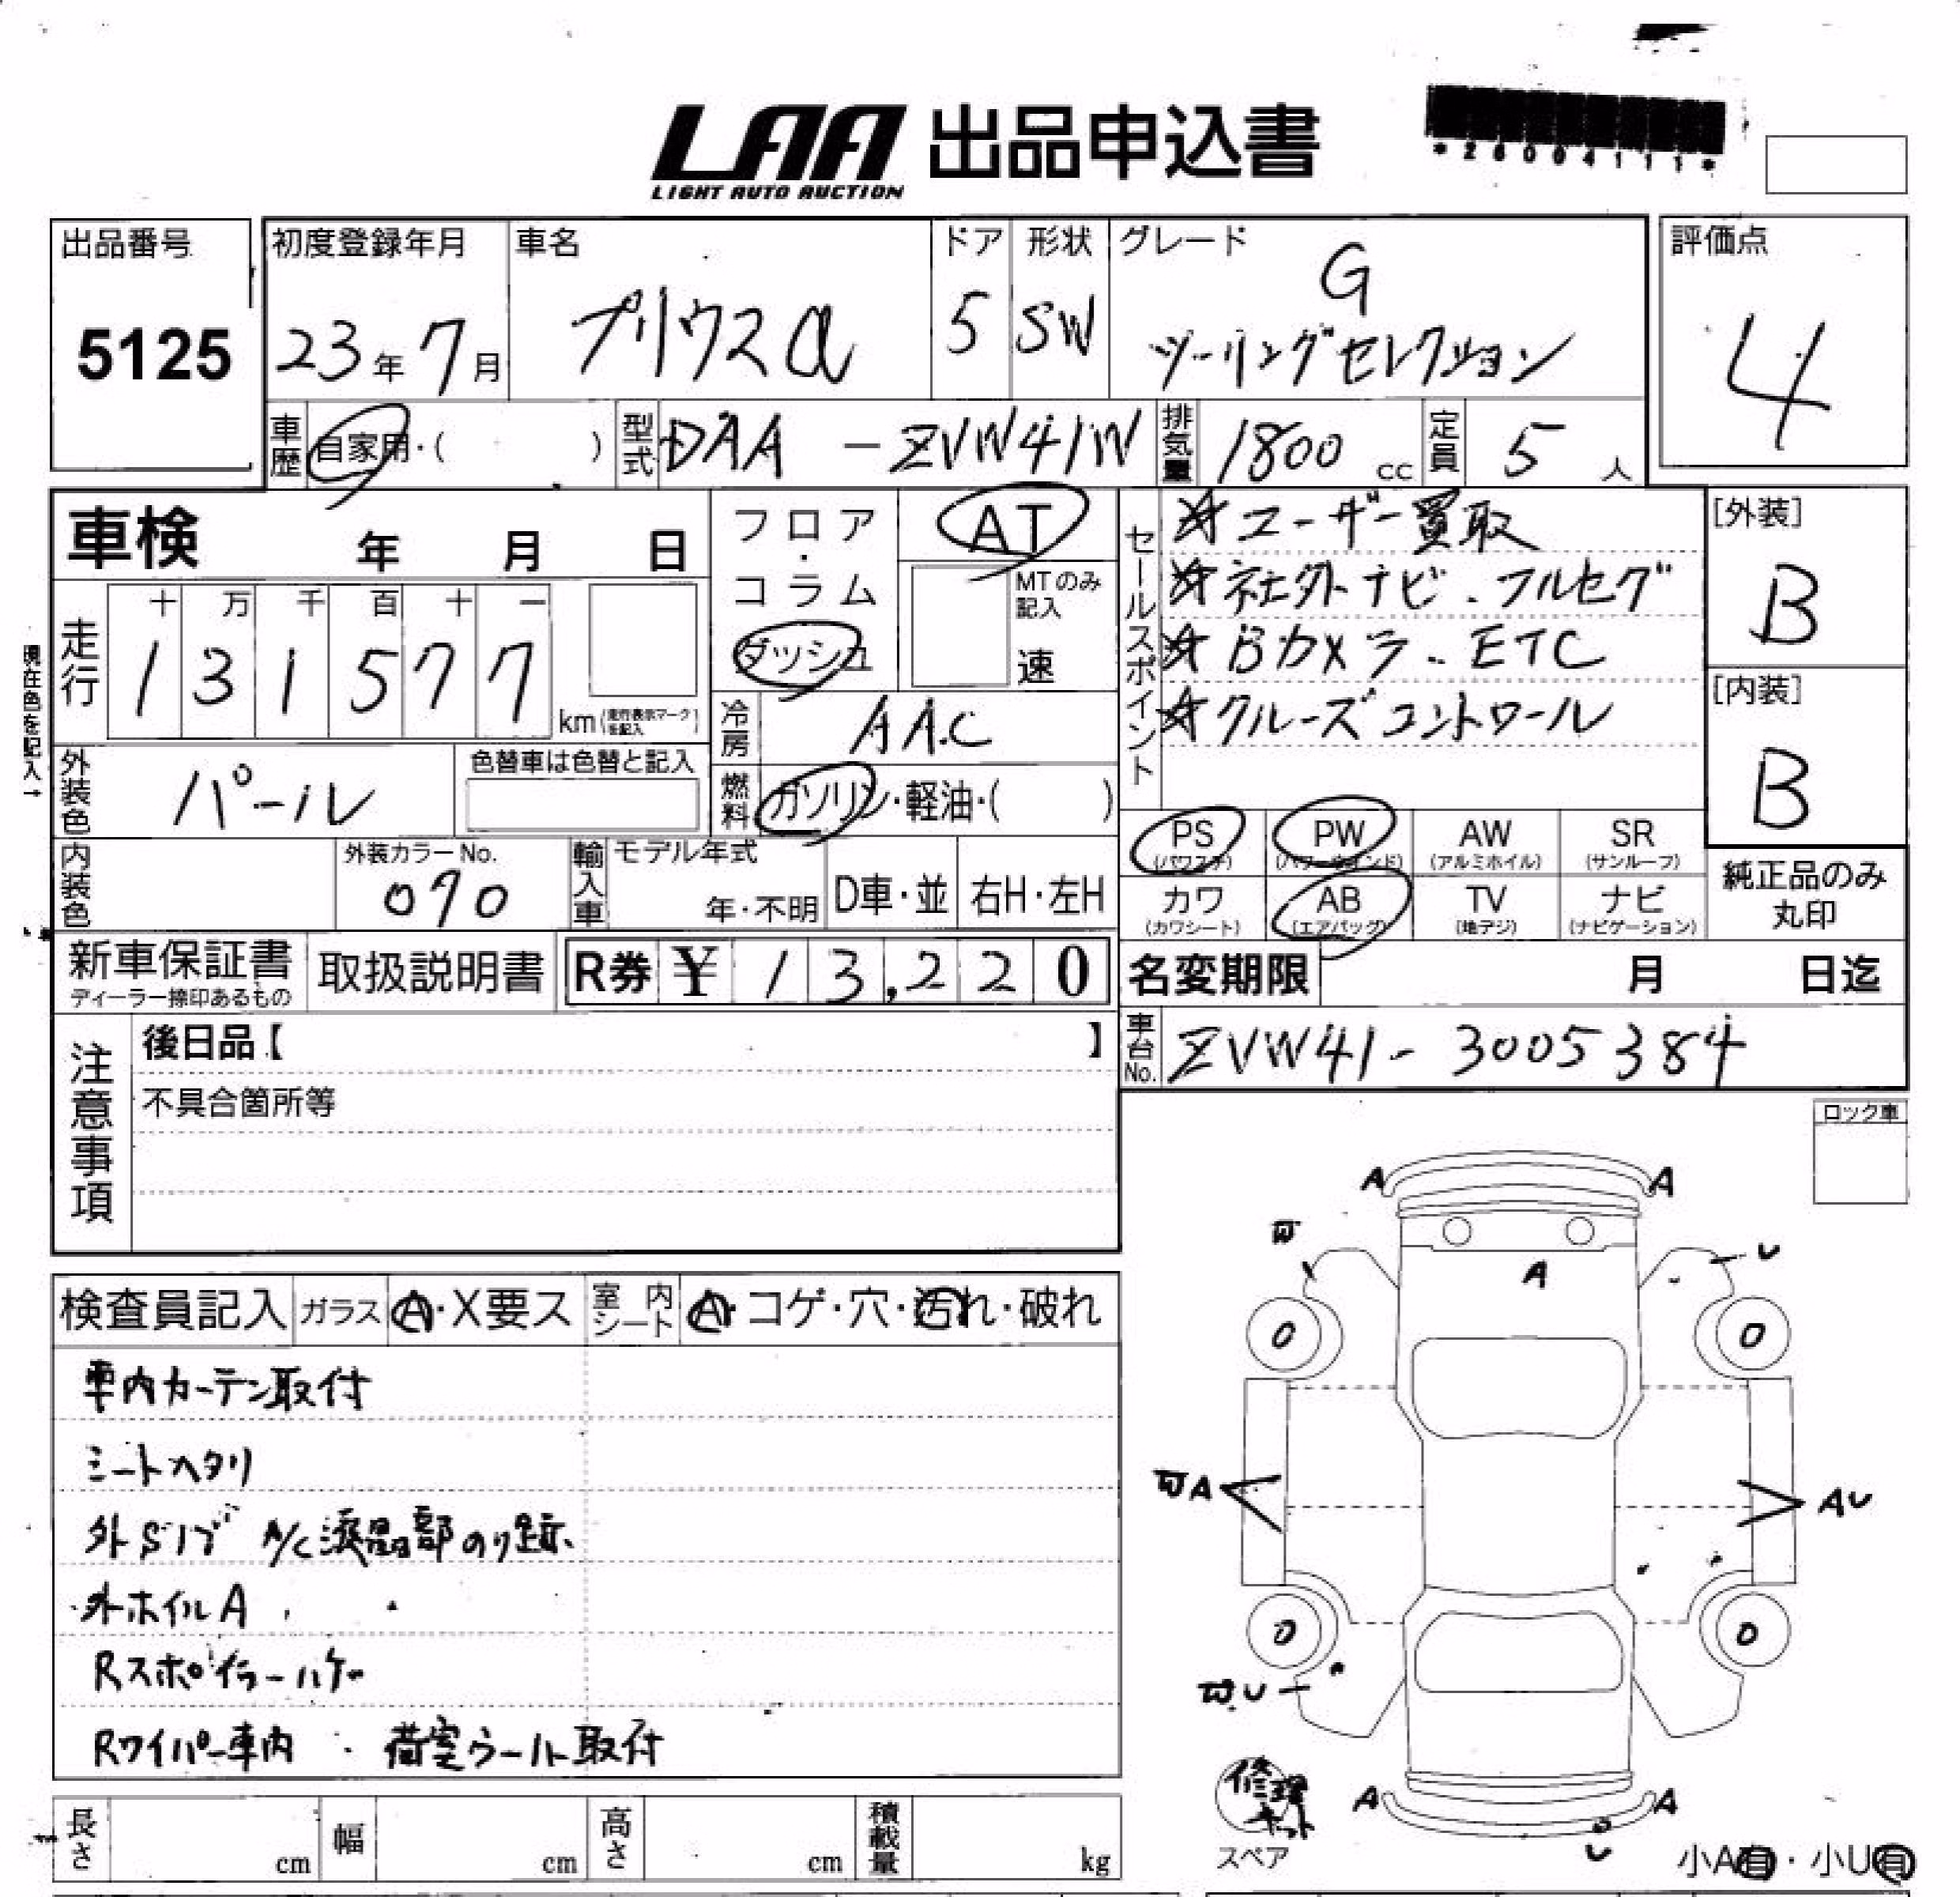 LAA 出品申込書
LIGHT AUTO AUCTION
*26004111*
出品番号 初度登録年月 車名 ドア 形状 グレード 評価点
5125 23年 7月 プリウスα 5 SW G
ツーリングセレクション 4
車歴 自家用・( ) 型式 DAA-ZVW41W 排気量 1800 cc 定員 5 人
車検 年 月 日
フロア・コラム
ダッシュ
AT
MTのみ記入
速
走行 十 万 千 百 十 一
1 3 1 5 7 7 km (走行表示マークを記入)
現在色を記入→
冷房 AAC
外装色 パール 色替車は色替と記入
燃料 ガソリン・軽油・( )
内装色 外装カラーNo. 070
輸入車 モデル年式 年・不明 D車・並 右H・左H
セールスポイント
☆ユーザー買取
☆社外ナビ.フルセグ
☆Bカメラ.ETC
☆クルーズコントロール
[外装]
B
[内装]
B
PS (パワステ) PW (パワーウインド) AW (アルミホイル) SR (サンルーフ)
カワ (カワシート) AB (エアバッグ) TV (地デジ) ナビ (ナビゲーション)
純正品のみ
丸印
新車保証書 取扱説明書 R券 ¥ 13,220
ディーラー捺印あるもの
名変期限 月 日迄
車台No. ZVW41-3005384
注意事項
後日品【 】
不具合箇所等
ロック車
検査員記入 ガラス A・X要ス 室内シート A・コゲ・穴・汚れ・破れ
車内カーテン取付
シートヘタリ
外Sイブ A/C液晶部のり跡
外ホイルA
Rスポイラーハゲ
Rワイパー車内 . 荷室ウール取付
A A
U
A
0 0
A AU
0 0
U
修理キット
スペア
A A
U
小A有・小U有
長さ cm 幅 cm 高さ cm 積載量 kg